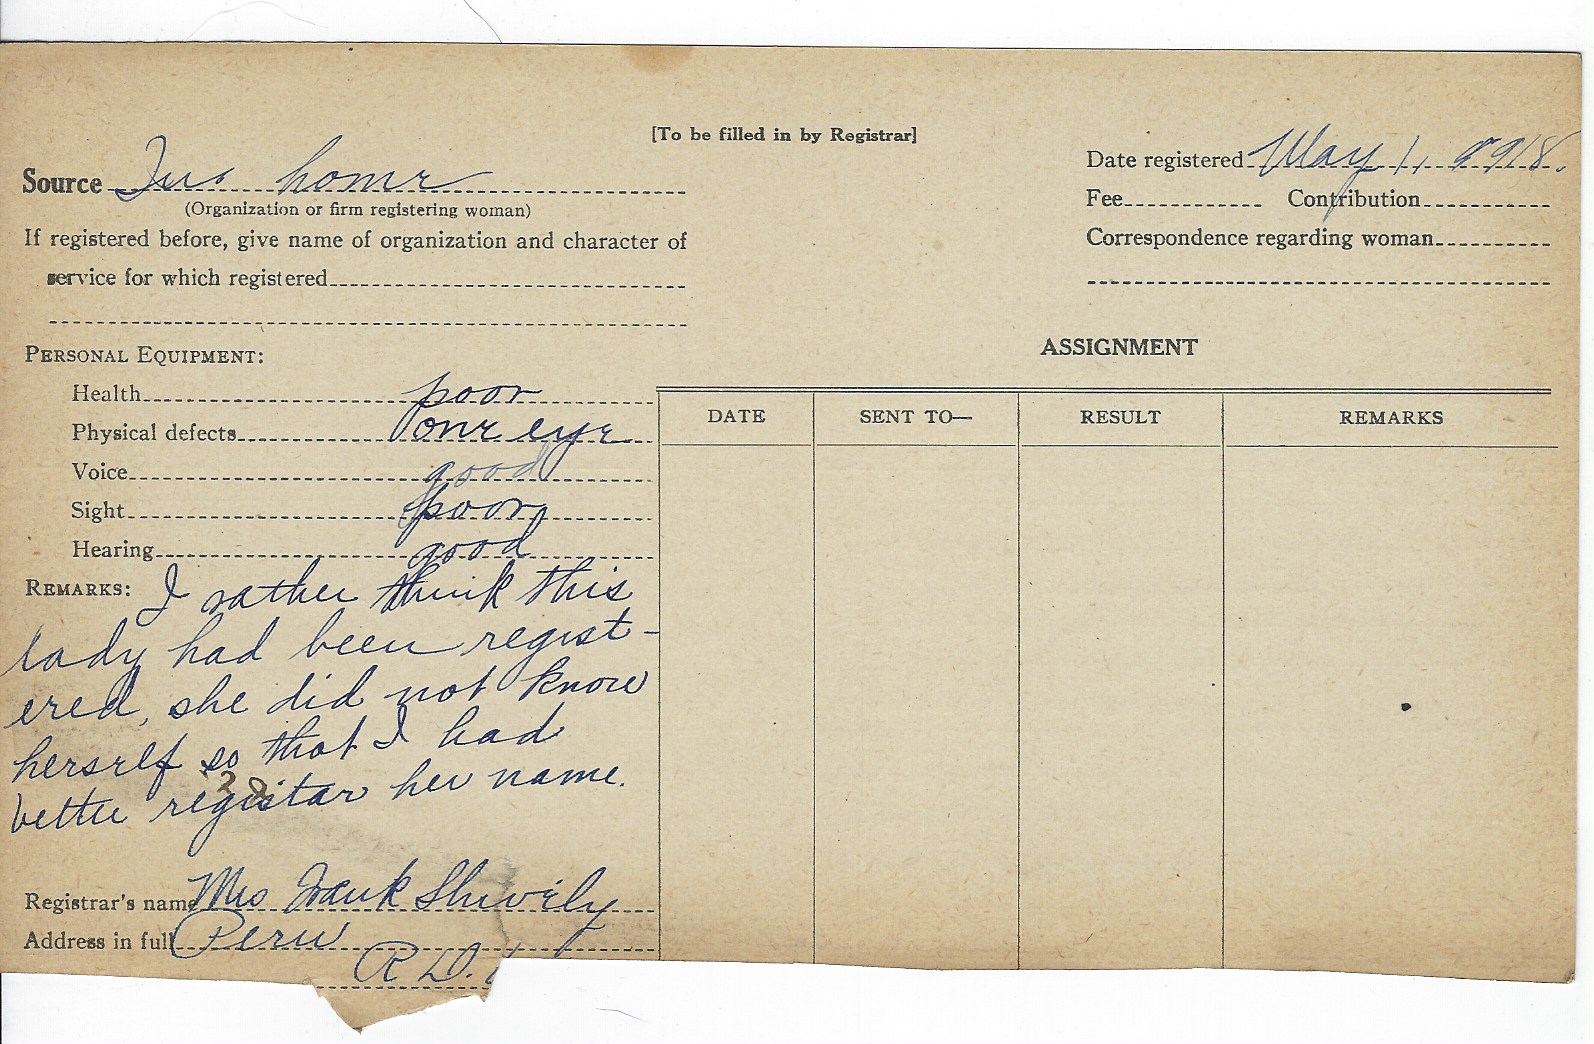 [To be filled in by Registrar]
Source home
(Organization or firm registering woman)
If registered before, give name of organization and character of
service for which registered
Date registered May 1, 1918.
Fee Contribution
Correspondence regarding woman
PERSONAL EQUIPMENT:
Health poor
Physical defects one eye
Voice good
Sight poor
Hearing good
REMARKS: I rather think this
lady had been regist-
ered, she did not know
herself so that I had
better registar her name.
28
Registrar's name Mrs Frank Shively
Address in full Peru
R D.
ASSIGNMENT
DATE SENT TO— RESULT REMARKS